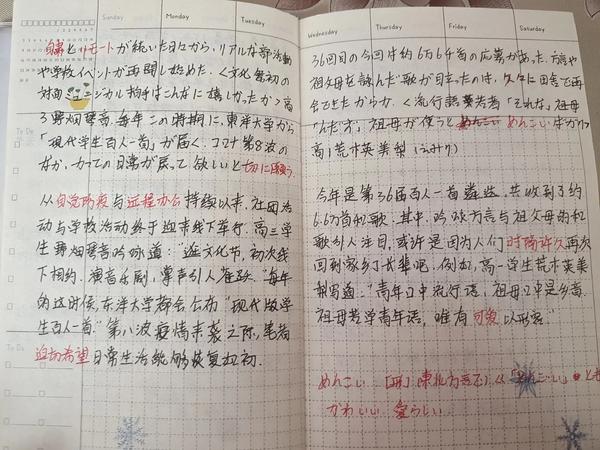 Sunday
Monday
Tuesday
自粛とリモートが続いた日々から、リアルな部活動
や学校イベントが再開し始めた。〈文化祭初の
対面ミュージカル拍手はこんなに嬉しかったか〉高
3野畑琴音。毎年この時期に、東洋大学から
「現代学生百人一首」が届く。コロナ第8波の
なか、かつての日常が戻って欲しいと切に願う。
从自觉防疫与远程办公持续以来,社团活
动与学校活动终于迎来线下举行。高三学
生野畑琴音吟咏道:“逛文化节,初次线
下相约。演音乐剧,掌声引人雀跃。”每年
的这时候,东洋大学都会公布“现代版学
生百人一首。”第八波疫情来袭之际,笔者
迫切希望日常生活能够恢复如初。
To Do
To Do
Wednesday
Thursday
Friday
Saturday
36回目の今回は約6万6千首の応募があった。方言や
祖父母を詠んだ歌が目立ったのは、久々に田舎で再
会できたからか。〈流行語若者「それな」祖母
「んだず」祖母が使うと めんこい
高1荒木英美梨
今年是第36届百人一首 共收到了约
6.6万首和歌。其中,吟咏方言与祖父母的和
歌引人注目,或许是因为人们时隔许久再次
回到故乡了长辈吧。例如,高一学生荒木英美
梨写道:“青年口中流行语,祖母口中是乡音。
祖母若学青年语,唯有可爱以形容”
めんこい [形] 東北方言 「めんごい」とも
かわいい、愛らしい。